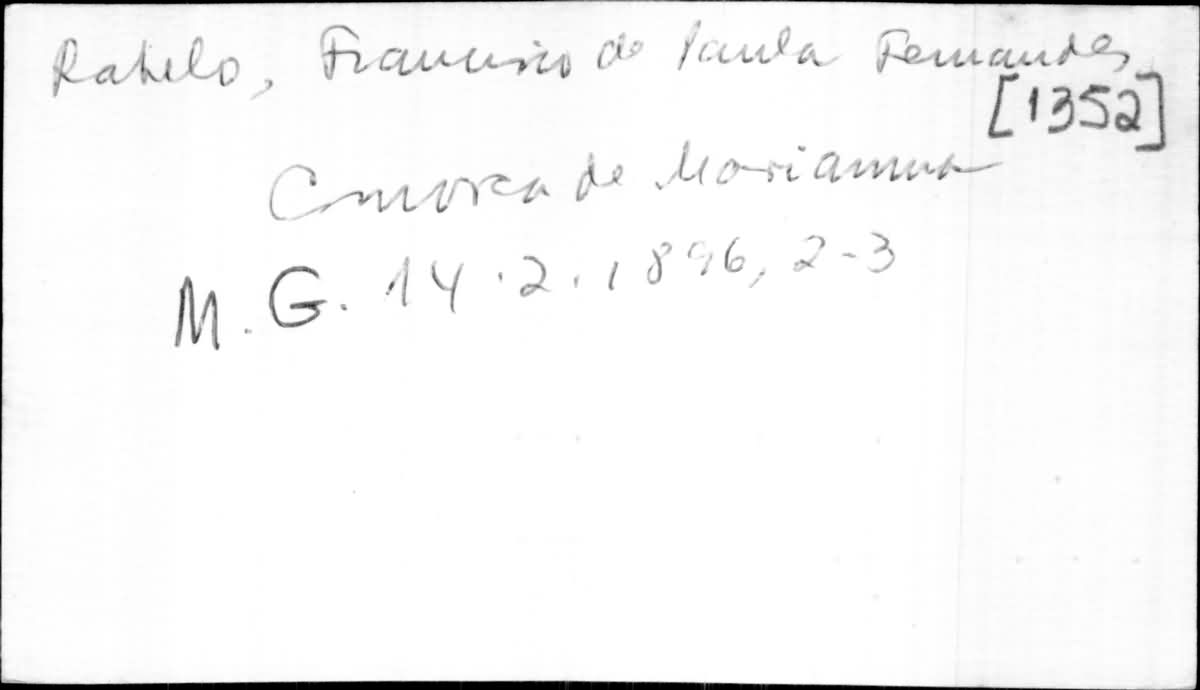 Rabelo, Francisco de Paula Fernandes
[1352]
Comarca de Marianna
M. G. 14.2.1896, 2-3